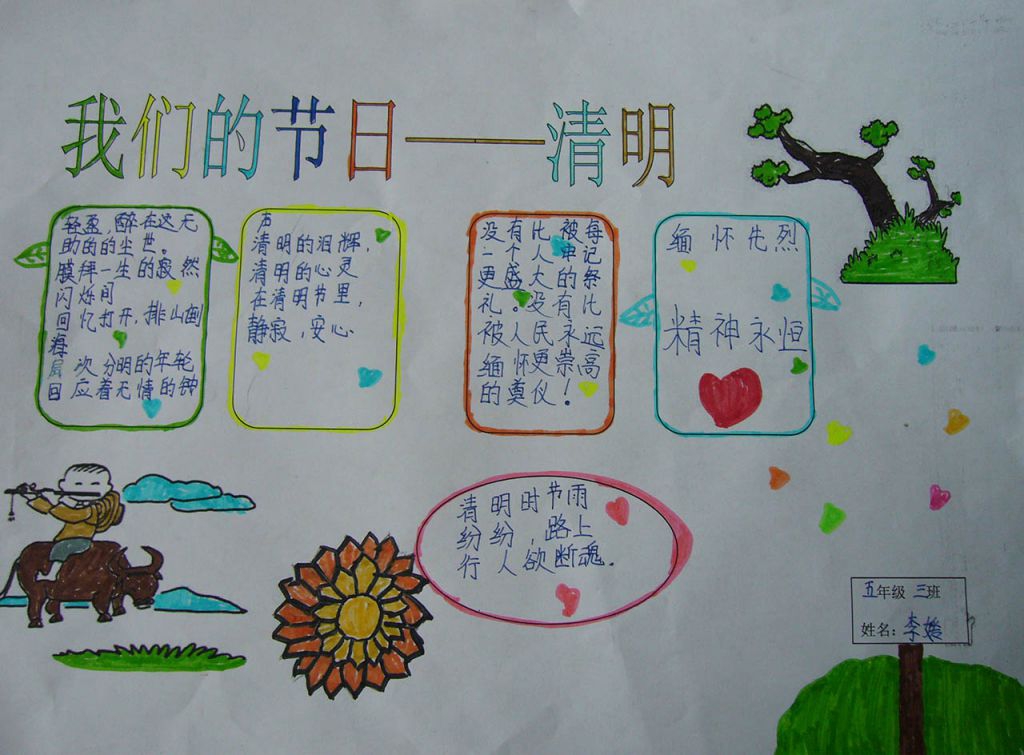 我们的节日——清明
轻盈,醉在这无
助的的尘世。
膜拜一生的寂然
闪烁间
回忆打开,排山倒
海
层次分明的年轮
回应着无情的钟
声
清明的泪辉,
清明的心灵
在清明节里,
静寂,安心
没有比被每
一个人牢记
更盛大的祭
礼。没有比
被人民永远
缅怀更崇高
的奠仪!
缅怀先烈
精神永恒
清明时节雨
纷纷,路上
行人欲断魂.
五年级三班
姓名:李